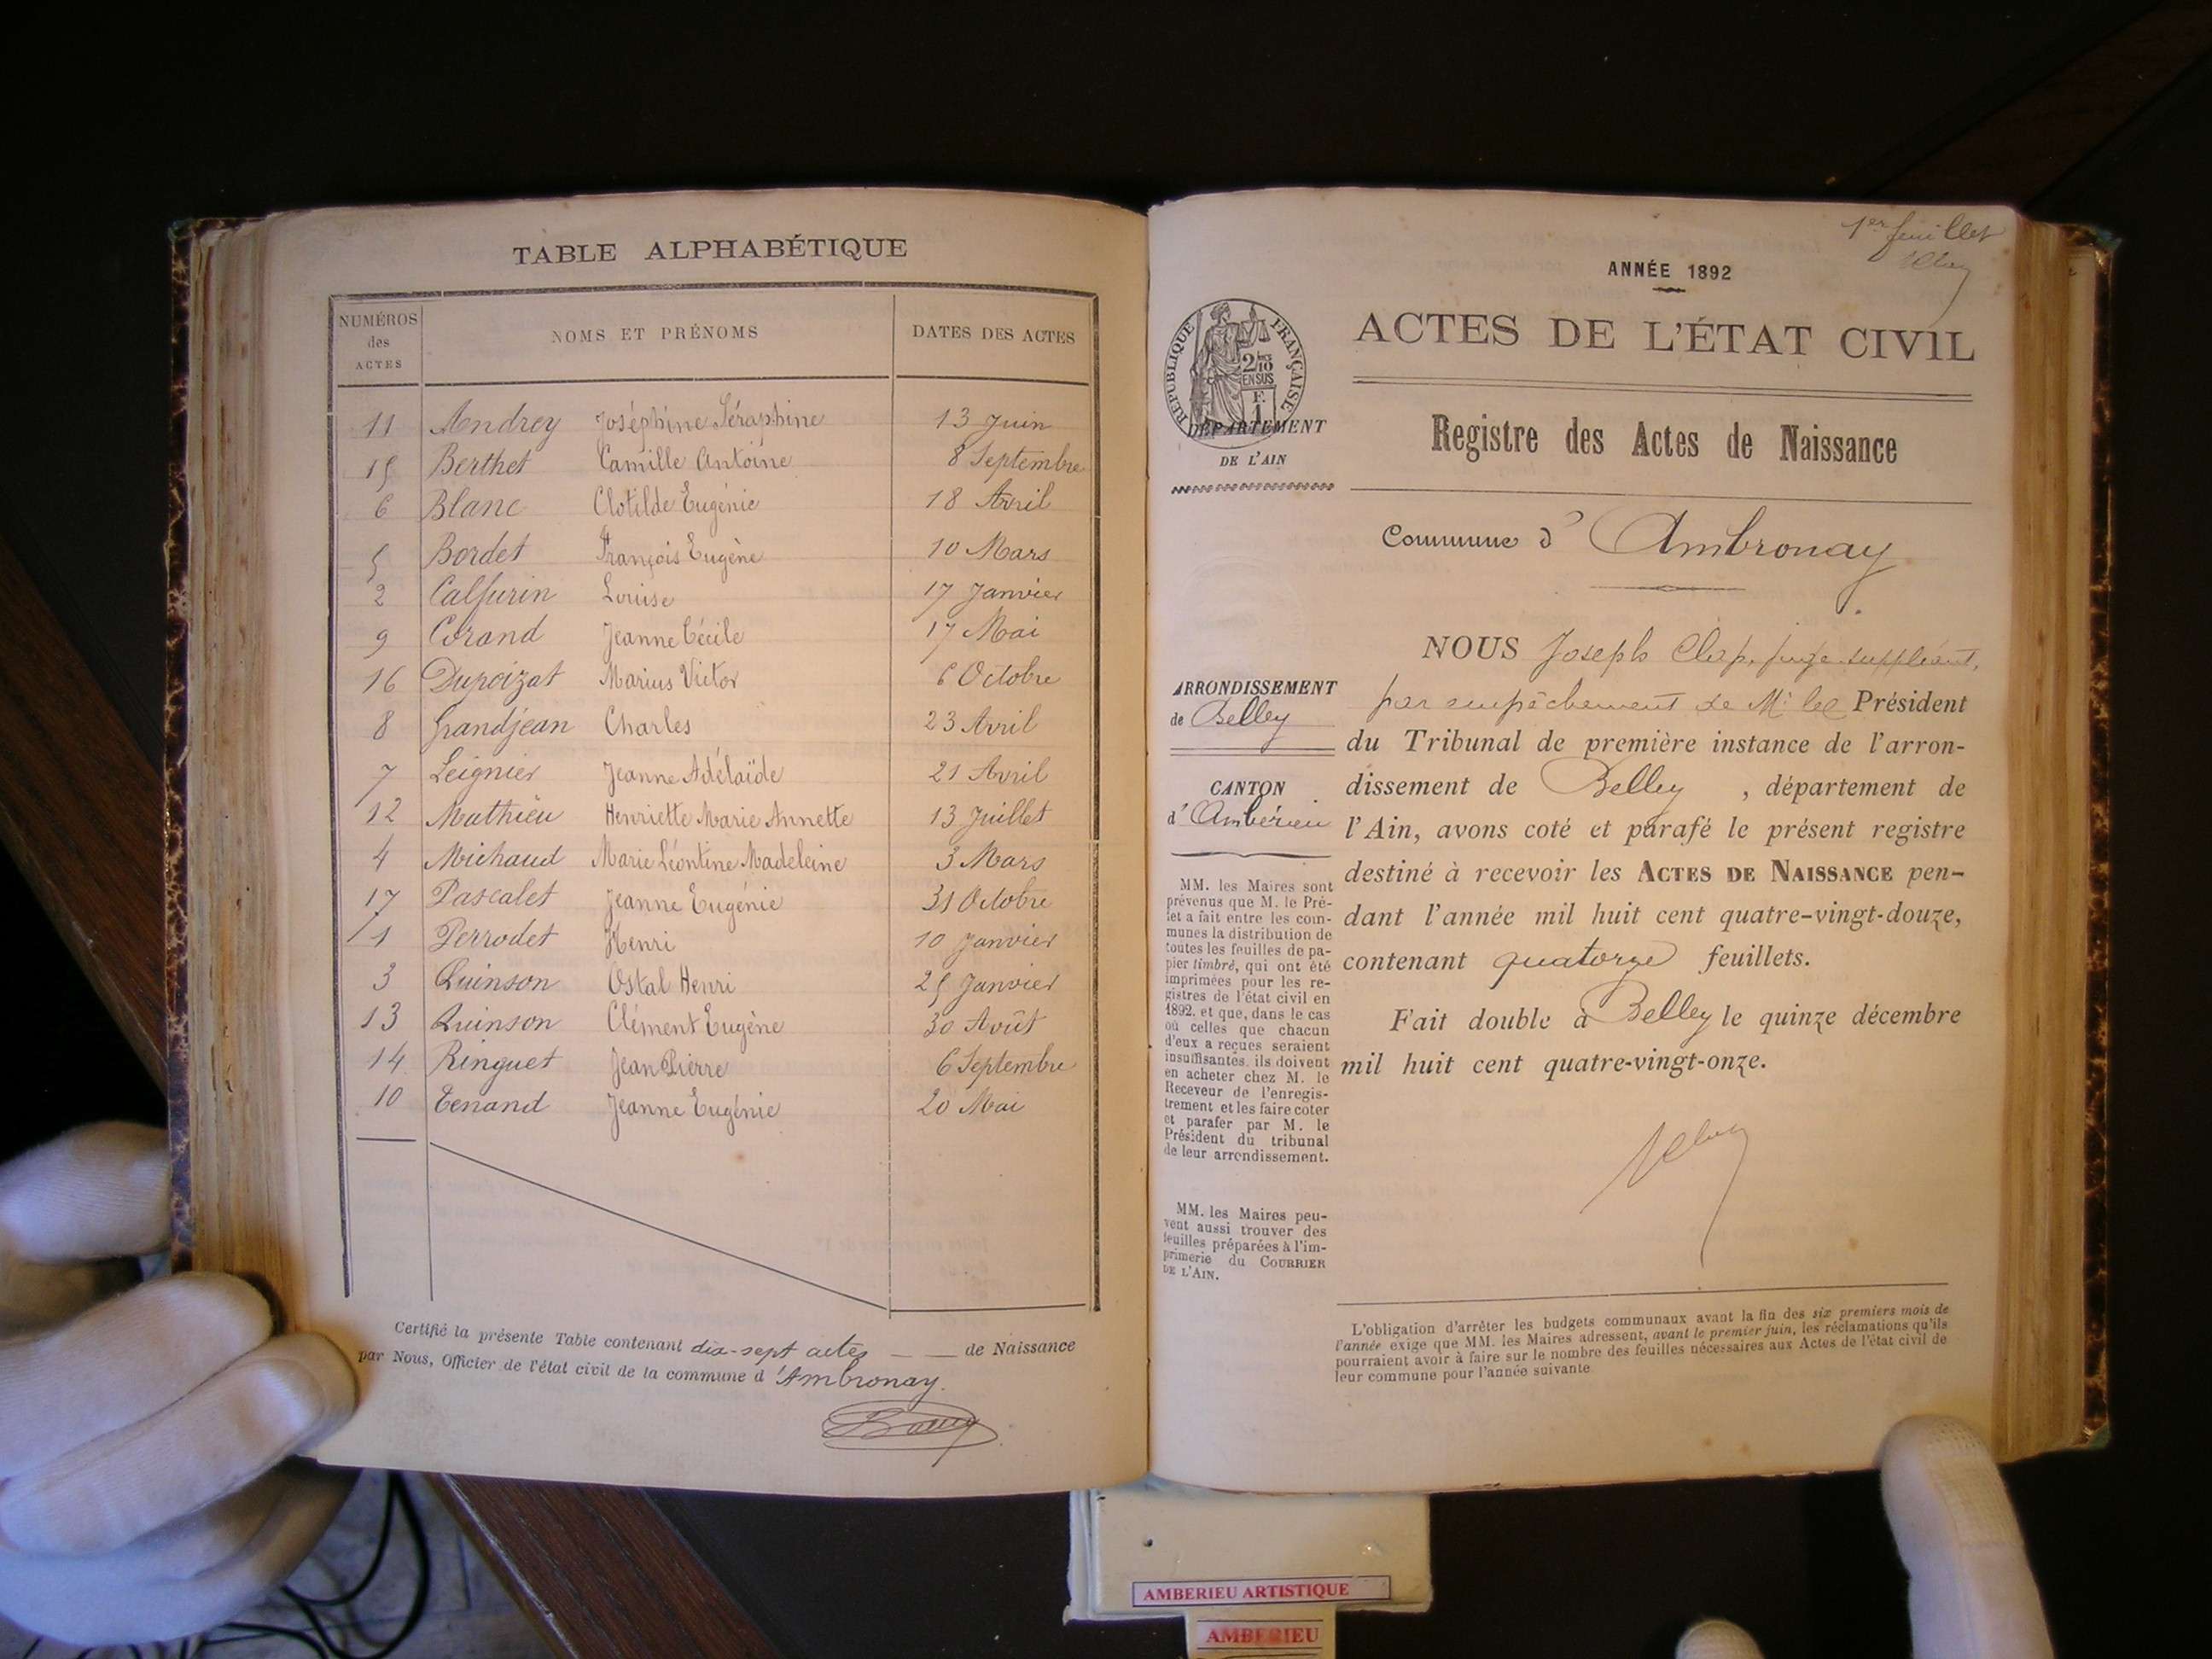 TABLE ALPHABÉTIQUE
NUMÉROS des ACTES NOMS ET PRÉNOMS DATES DES ACTES
11 Andrey Joséphine Séraphine 13 Juin
15 Berthet Camille Antoine 8 Septembre
6 Blanc Clotilde Eugénie 18 Avril
5 Bordet François Eugène 10 Mars
2 Calfurin Louise 17 Janvier
9 Corand Jeanne Cécile 17 Mai
16 Dupoizat Marius Victor 6 Octobre
8 Grandjean Charles 23 Avril
7 Leignier Jeanne Adélaïde 21 Avril
12 Mathieu Henriette Marie Annette 13 Juillet
4 Michaud Marie Léontine Madeleine 3 Mars
17 Pascalet Jeanne Eugénie 31 Octobre
1 Perrodet Henri 10 Janvier
3 Quinson Ostal Henri 25 Janvier
13 Quinson Clément Eugène 30 Août
14 Ringuet Jean Pierre 6 Septembre
10 Tenand Jeanne Eugénie 20 Mai
Certifié la présente Table contenant dix-sept actes de Naissance
par Nous, Officier de l'état civil de la commune d'Ambronay.
1er feuillet
ANNÉE 1892
ACTES DE L'ÉTAT CIVIL
RÉPUBLIQUE FRANÇAISE
2/10 EN SUS
F. 1
DÉPARTEMENT
DE L'AIN
Registre des Actes de Naissance
Commune d'Ambronay
ARRONDISSEMENT
de Belley
CANTON
d'Ambérieu
MM. les Maires sont
prévenus que M. le Pré-
fet a fait entre les com-
munes la distribution de
toutes les feuilles de pa-
pier timbré, qui ont été
imprimées pour les re-
gistres de l'état civil en
1892, et que, dans le cas
où celles que chacun
d'eux a reçues seraient
insuffisantes, ils doivent
en acheter chez M. le
Receveur de l'enregis-
trement et les faire coter
et parafer par M. le
Président du tribunal
de leur arrondissement.
MM. les Maires peu-
vent aussi trouver des
feuilles préparées à l'im-
primerie du COURRIER
DE L'AIN.
NOUS Joseph Clap, juge suppléant,
par empêchement de Mr le Président
du Tribunal de première instance de l'arron-
dissement de Belley, département de
l'Ain, avons coté et parafé le présent registre
destiné à recevoir les ACTES DE NAISSANCE pen-
dant l'année mil huit cent quatre-vingt-douze,
contenant quatorze feuillets.
Fait double à Belley le quinze décembre
mil huit cent quatre-vingt-onze.
L'obligation d'arrêter les budgets communaux avant la fin des six premiers mois de
l'année exige que MM. les Maires adressent, avant le premier juin, les réclamations qu'ils
pourraient avoir à faire sur le nombre des feuilles nécessaires aux Actes de l'état civil de
leur commune pour l'année suivante
AMBERIEU ARTISTIQUE
AMBERIEU